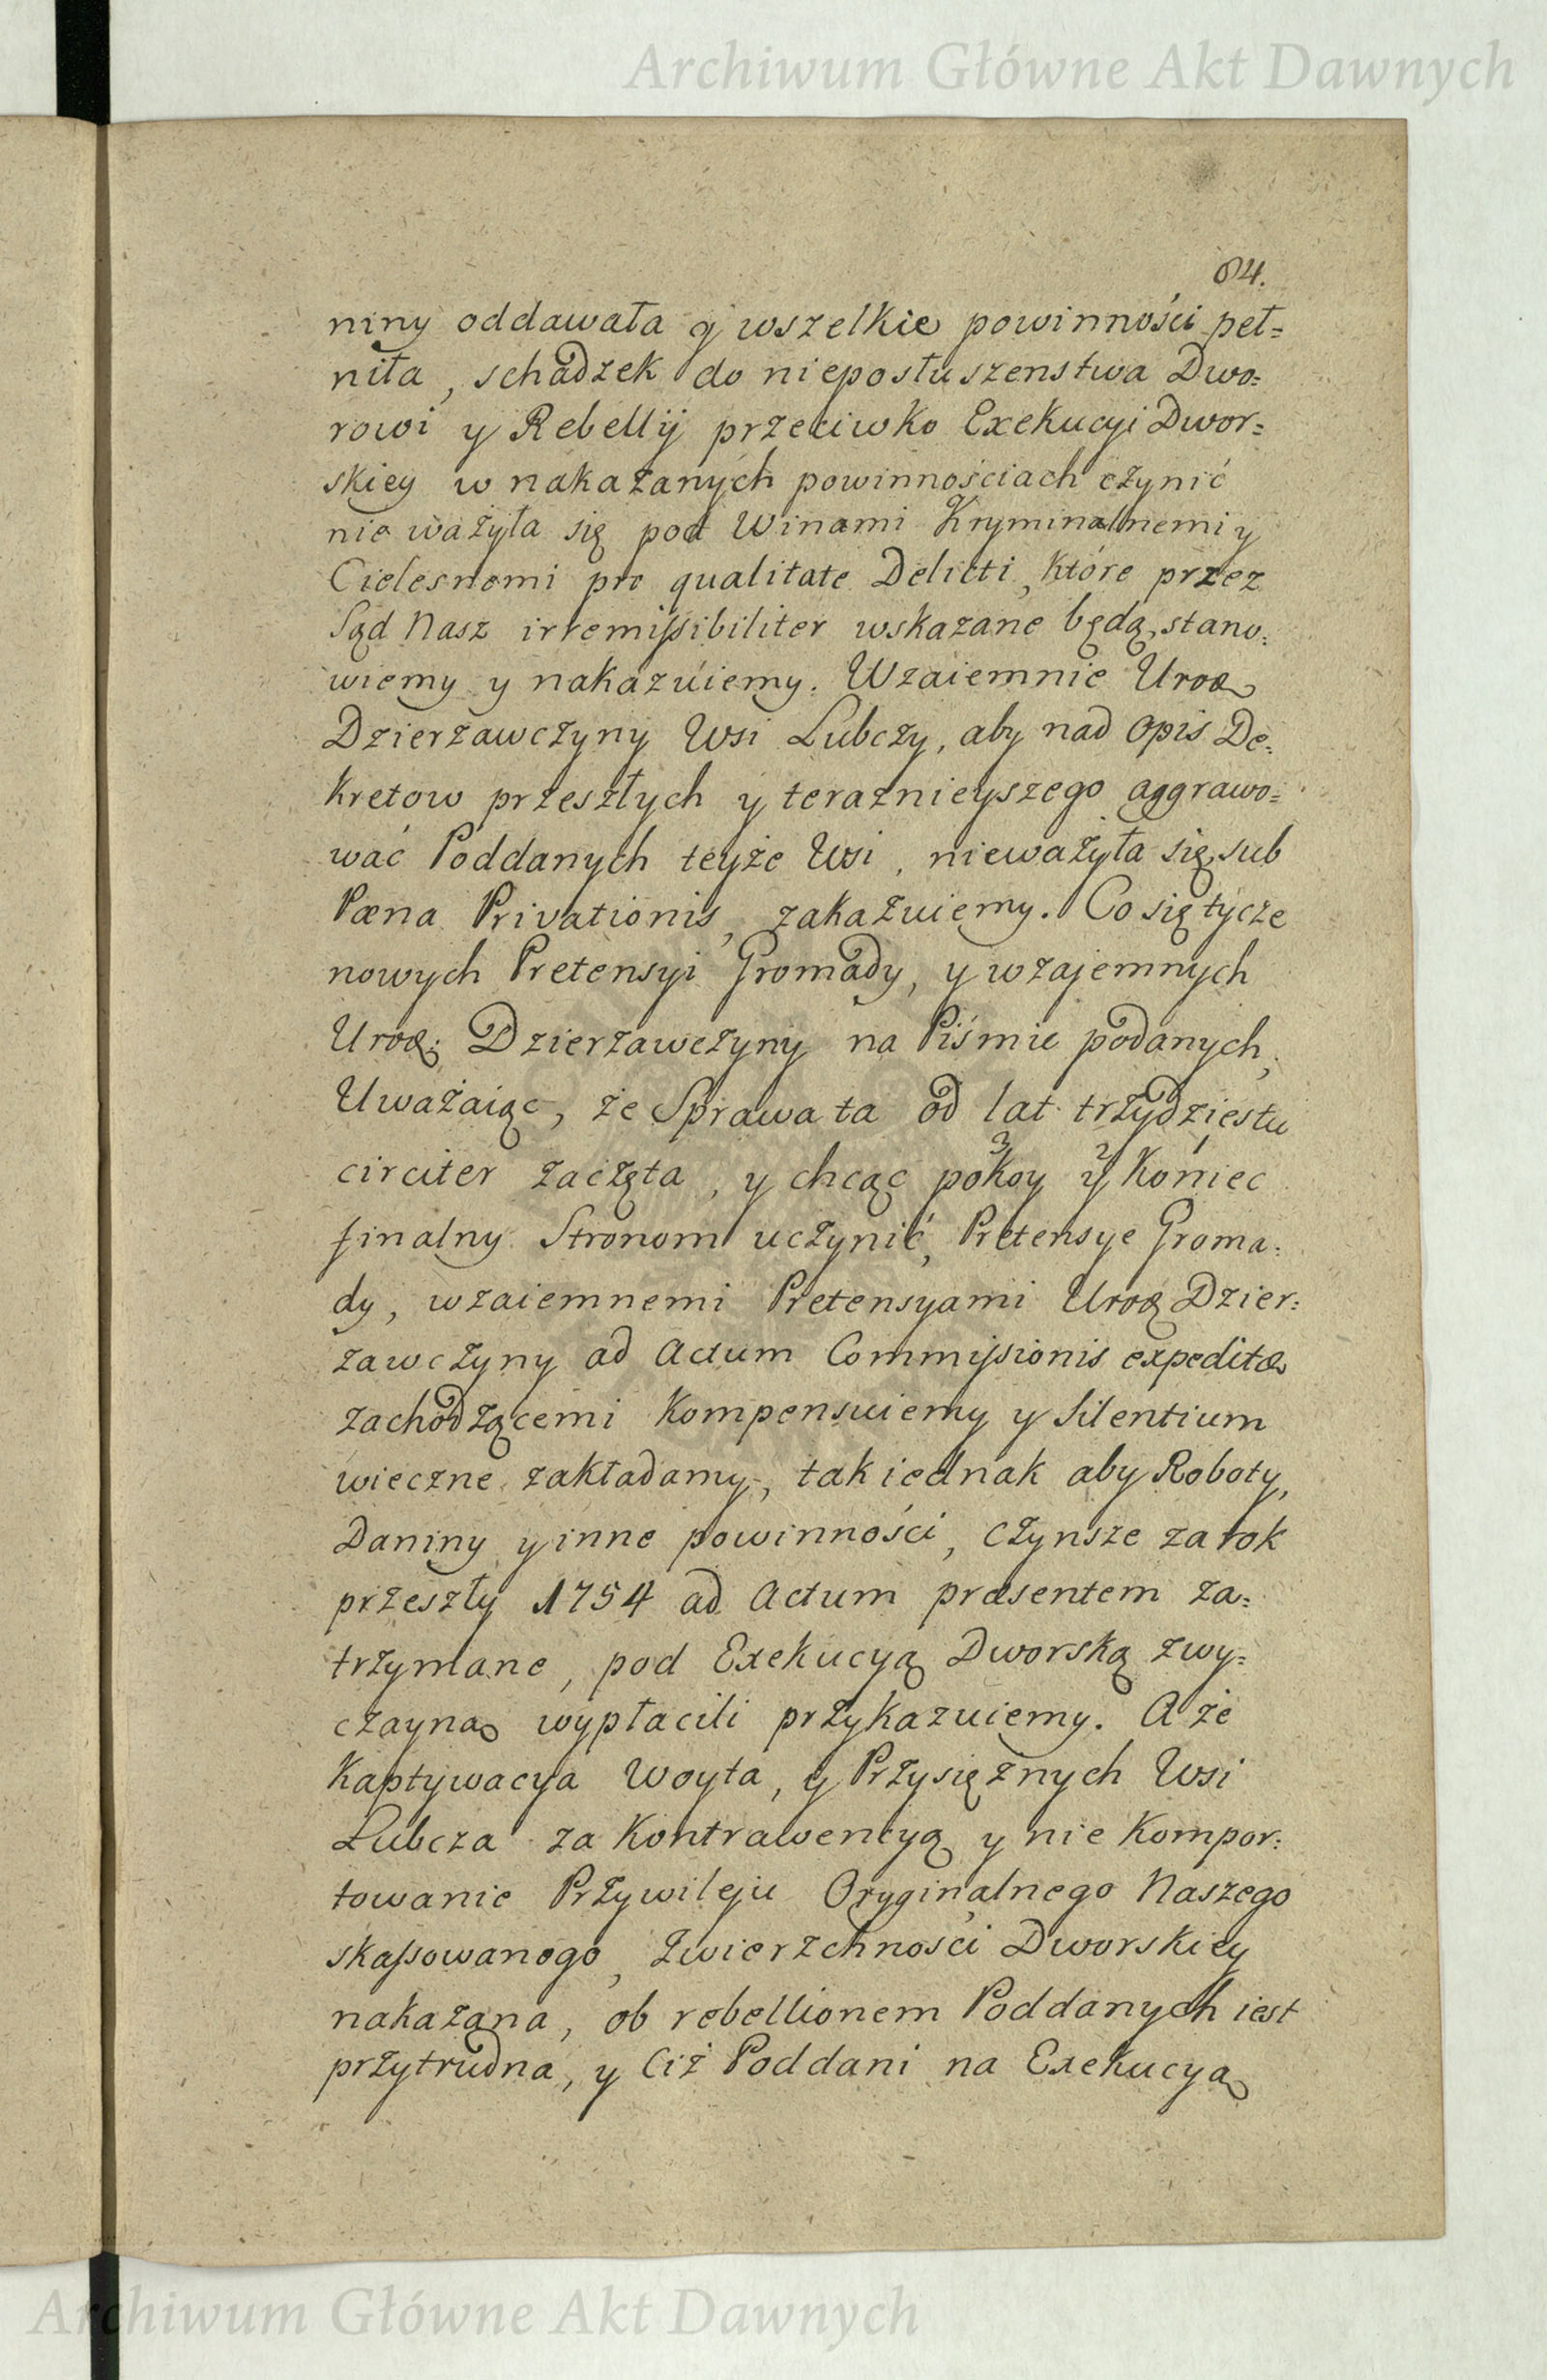 Archiwum Główne Akt Dawnych
64.
niny oddawała y wszelkie powinności peł=
niła, schadzek do nieposłuszenstwa Dwo=
rowi y Rebellij przeciwko Exekucyi Dwor=
skiey w nakazanych powinnościach czynić
nie ważyła się pod Winami Kryminalnemi y
Cielesnemi pro qualitate Delicti, które przez
Sąd Nasz irremissibiliter wskazane będą, stano=
wiemy y nakazuiemy. Wzaiemnie Uroæ
Dzierzawczyny Wsi Lubczy, aby nad opis De=
kretow przeszłych y teraznieyszego aggrawo=
wać Poddanych teyże Wsi, nieważyła się, sub
Pœna Privationis, zakazuiemy. Co się tycze
nowych Pretensyi Gromady, y wzajemnych
Uroę: Dzierzawczyny na Piśmie podanych,
Uważaiąc, że Sprawa ta od lat trzydziestu
circiter zaczęta, y chcąc pokoy y Koniec
3 2 1
finalny Stronom uczynić, Pretensye Groma=
dy, wzaiemnemi Pretensyami Uroę Dzier=
zawczyny ad Actum Commissionis expeditæ
zachodzącemi kompensuiemy y Silentium
wieczne zakładamy, tak iednak aby Roboty,
Daniny y inne powinności, Czynsze za rok
przeszły 1754 ad Actum præsentem za=
trzymane, pod Exekucyą Dworską zwy=
czayną wypłacili przykazuiemy. A że
Kaptywacya Woyta, y Przysiężnych Wsi
Lubcza za Kontrawencyą y nie Kompor=
towanie Przywileju Oryginalnego Naszego
skassowanego, Zwierzchności Dworskiey
nakazana, ob rebellionem Poddanych iest
przytrudna, y Ciż Poddani na Exekucyą
Archiwum Główne Akt Dawnych